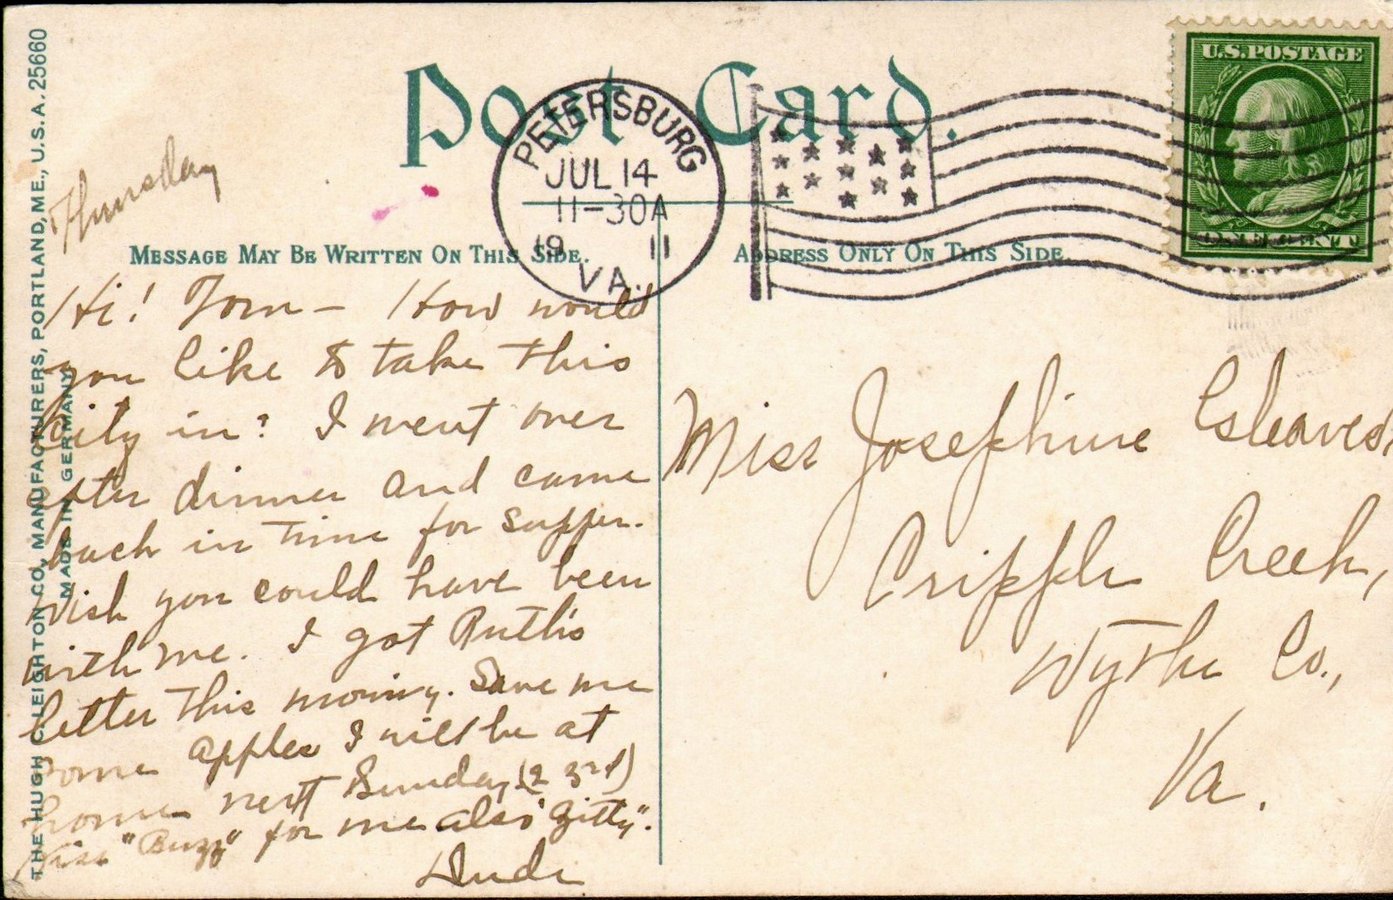 Post Card.
PETERSBURG
JUL 14
11-30A
19 11
VA.
U.S. POSTAGE
ONE CENT
THE HUGH C. LEIGHTON CO., MANUFACTURERS, PORTLAND, ME., U.S.A. 25660
MADE IN GERMANY.
MESSAGE MAY BE WRITTEN ON THIS SIDE.
ADDRESS ONLY ON THIS SIDE
Thursday
Hi! Tom - How would
you like to take this
City in? I went over
after dinner and came
back in time for supper.
Wish you could have been
with me. I got Ruth's
letter this morning. Save me
some apples I will be at
home next Sunday (23rd)
Kiss "Buzz" for me also "Gitty".
Miss Josephine
Cripple Creek,
Wythe Co.,
Va.